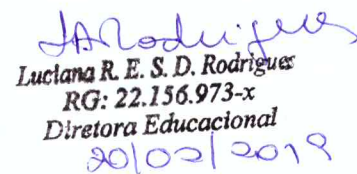 Luciana R. E. S. D. Rodrigues
RG: 22.156.973-x
Diretora Educacional
20/02/2019